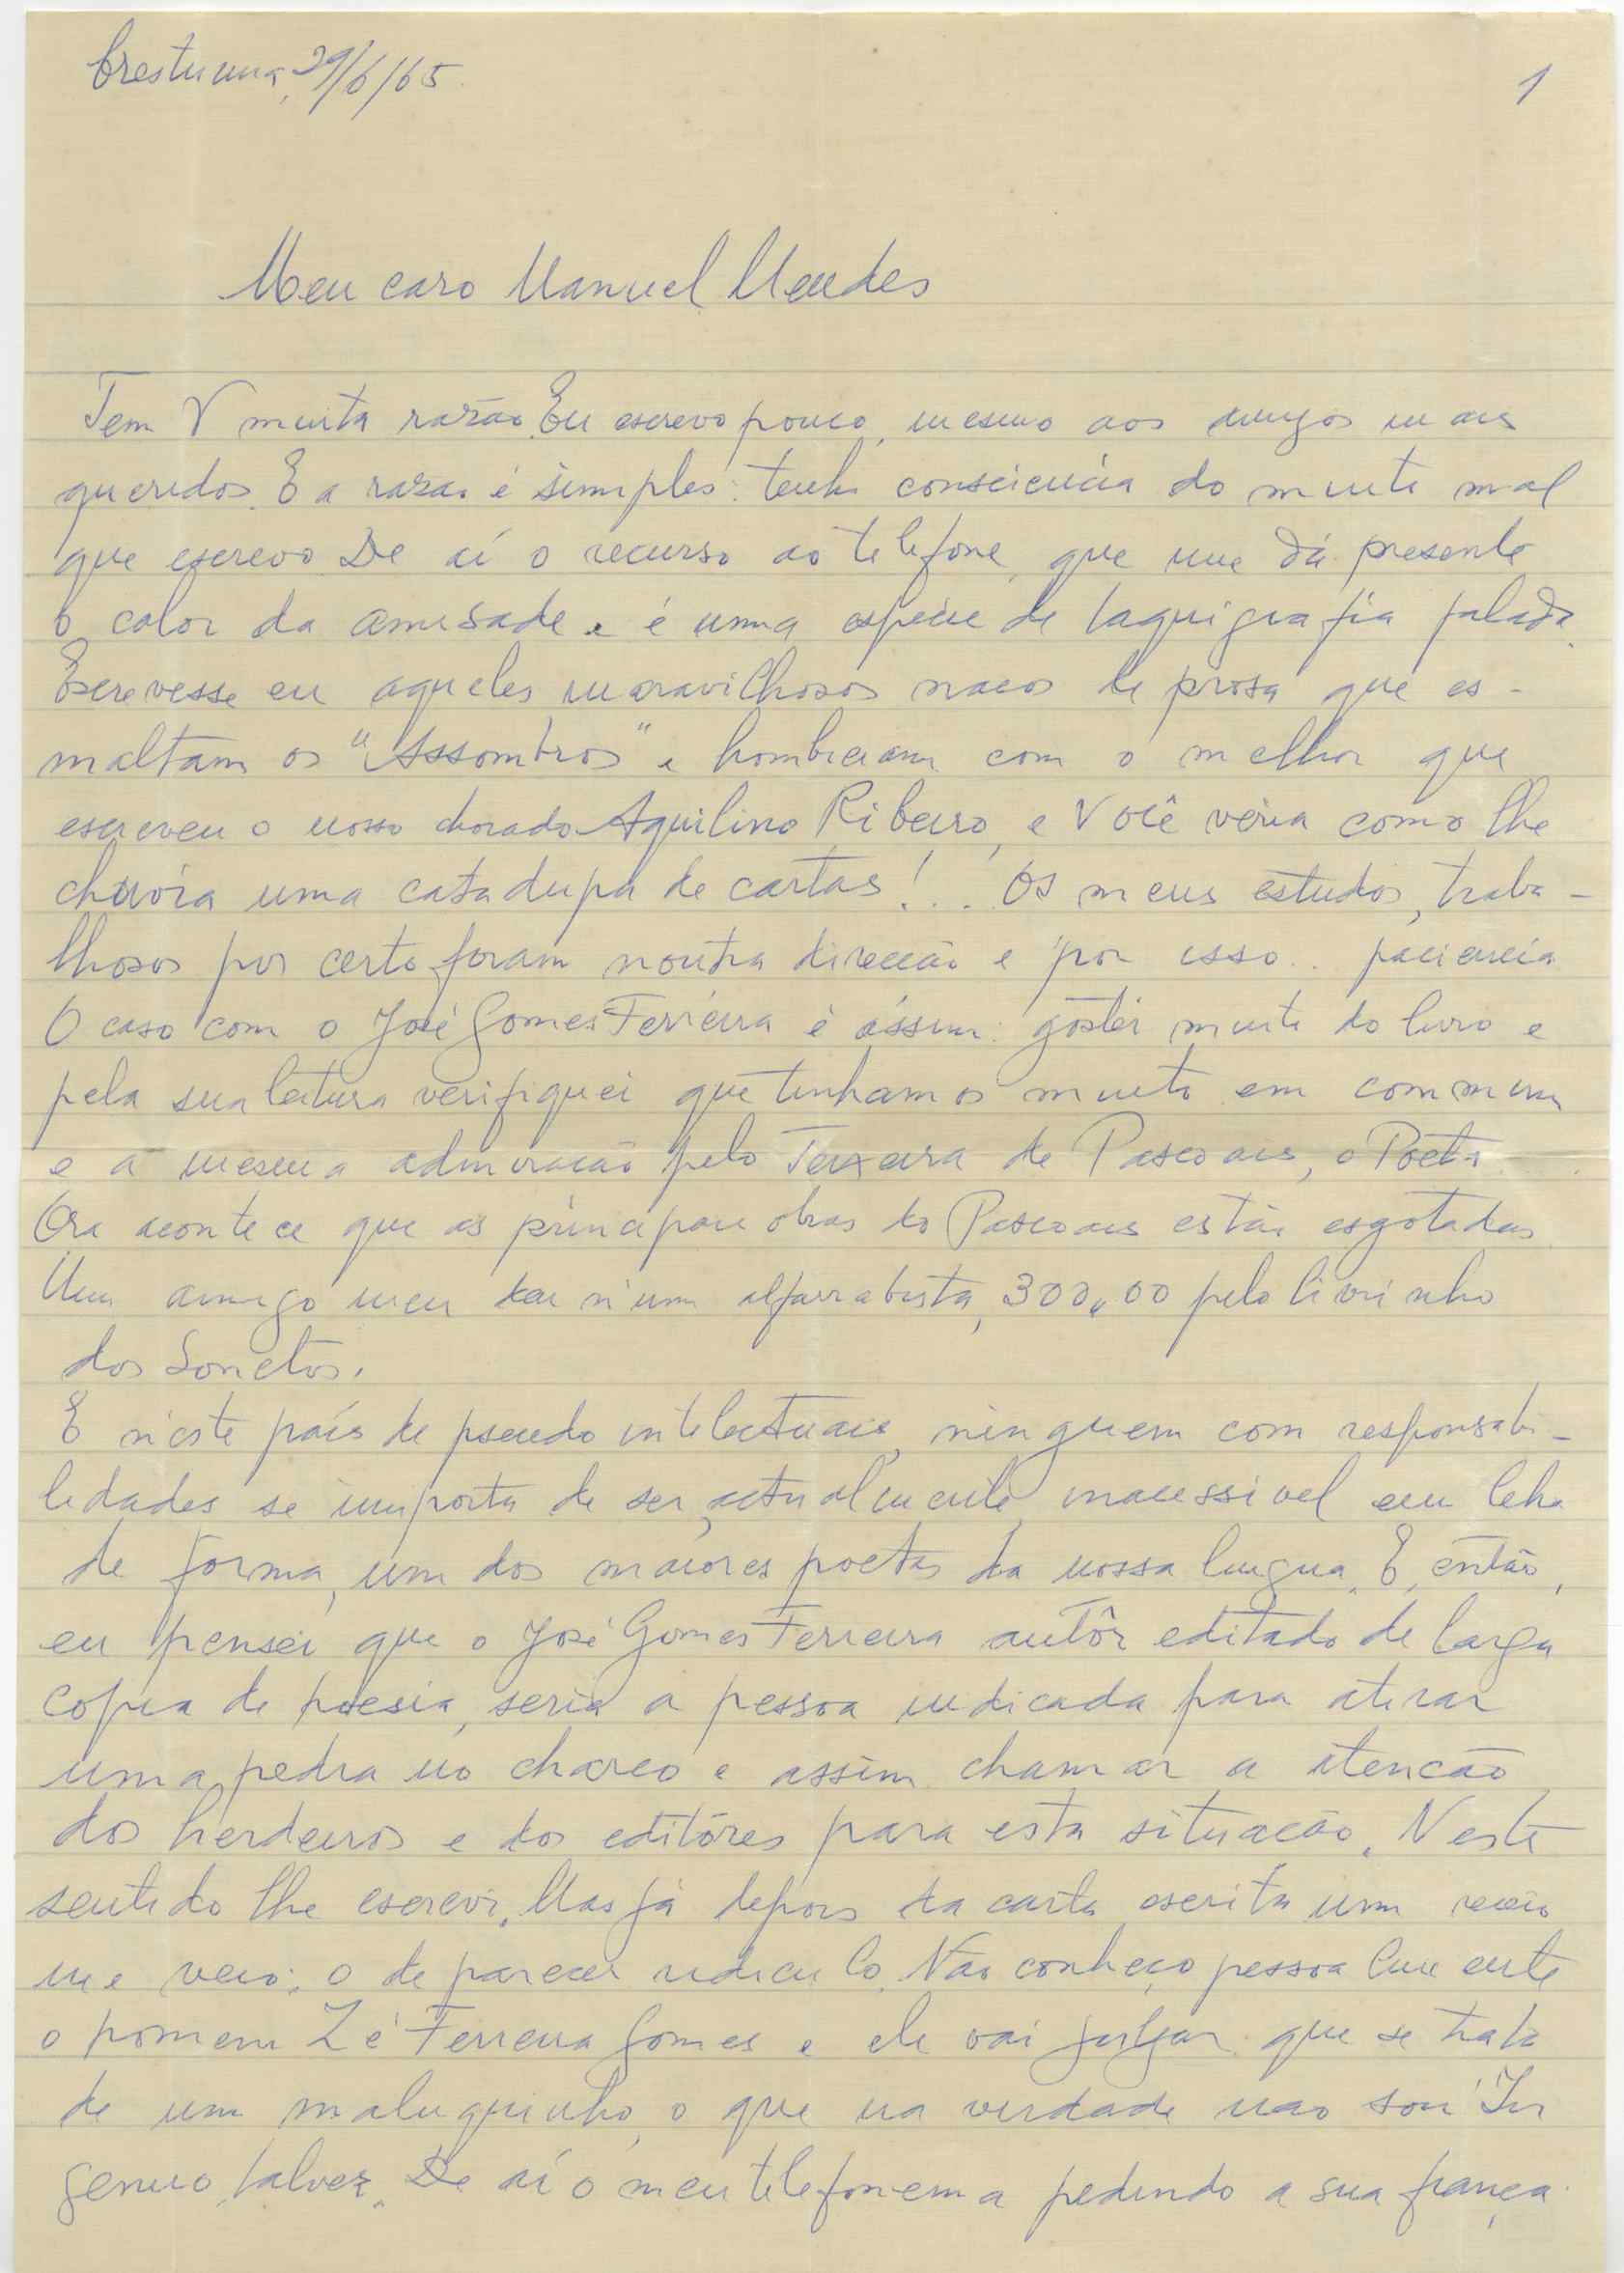 Crestuma, 29/6/65.
1
Meu caro Manuel Mendes
Tem V muita razão. Eu escrevo pouco, mesmo aos amigos mais
queridos. E a razão é simples: tenho consciencia do muito mal
que escrevo De aí o recurso ao telefone, que me dá presente
o calor da amisade e é uma espécie de taquigrafia falada.
Escrevesse eu aqueles maravilhosos nacos de prosa que es-
maltam os "Assombros" e hombreiam com o melhor que
escreveu o nosso chorado Aquilino Ribeiro, e Você veria como lhe
chovia uma catadupa de cartas!... Os meus estudos, traba-
lhosos por certo foram noutra direcção e por isso.. paciencia
O caso com o José Gomes Ferreira é assim: gostei muito do livro e
pela sua leitura verifiquei que tinhamos muito em commum
e a mesma admiração pelo Teixeira de Pascoais, o Poeta.
Ora acontece que as principais obras do Pascoais estão esgotadas.
Um amigo meu deu n'um alfarrabista, 300,00 pelo livrinho
dos Sonetos.
E n'este país de pseudo intelectuais, ninguem com responsabi-
lidades se importa de ser, actualmente, inacessivel em letra
de forma, um dos maiores poetas da nossa lingua. E, então,
eu pensei que o José Gomes Ferreira autôr editado de larga
copia de poesia, seria a pessoa indicada para atirar
uma pedra no charco e assim chamar a atenção
dos herdeiros e dos editôres para esta situação. Neste
sentido lhe escrevi. Mas já depois da carta escrita um receio
me veio: o de parecer ridiculo. Não conheço pessoalmente
o homem Zé Ferreira Gomes e ele vai julgar que se trata
de um maluquinho, o que na verdade não sou In
genuo, talvez. De aí o meu telefonema pedindo a sua fiança.